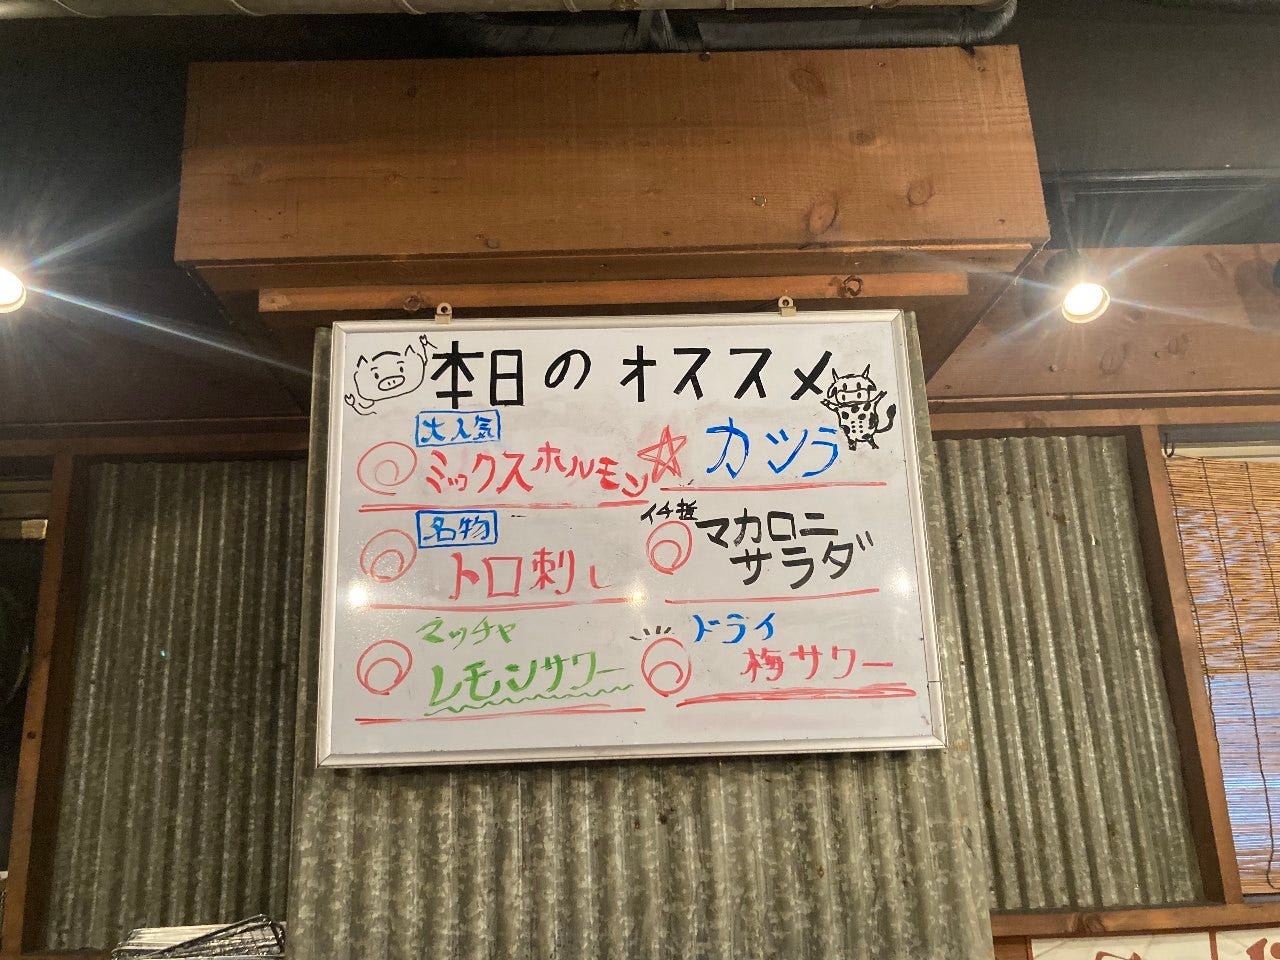 本日のオススメ
大人気
ミックスホルモン
カツラ
名物
トロ刺し
イチ押
マカロニ
サラダ
マッチャ
レモンサワー
ドライ
梅サワー